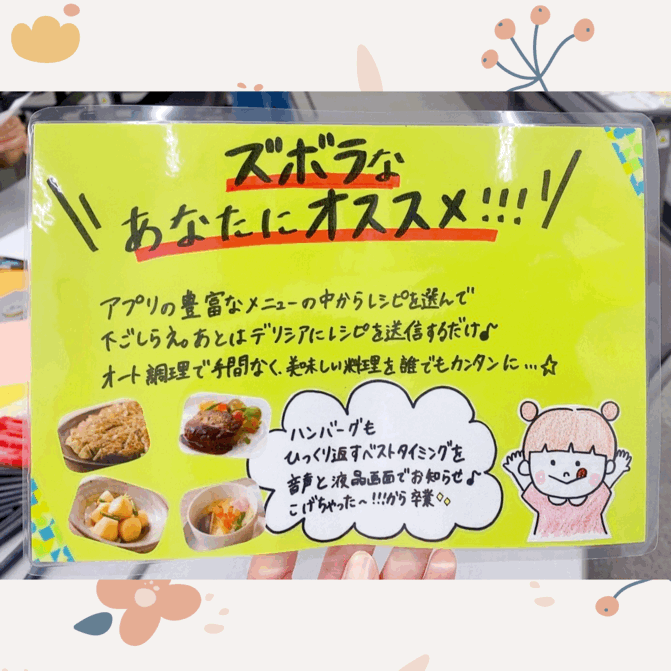 ズボラな
あなたにオススメ!!!
アプリの豊富なメニューの中からレシピを選んで
下ごしらえ。あとはデリシアにレシピを送信するだけ♪
オート調理で手間なく、美味しい料理を誰でもカンタンに…☆
ハンバーグも
ひっくり返すベストタイミングを
音声と液晶画面でお知らせ♪
こげちゃった〜!!!から卒業